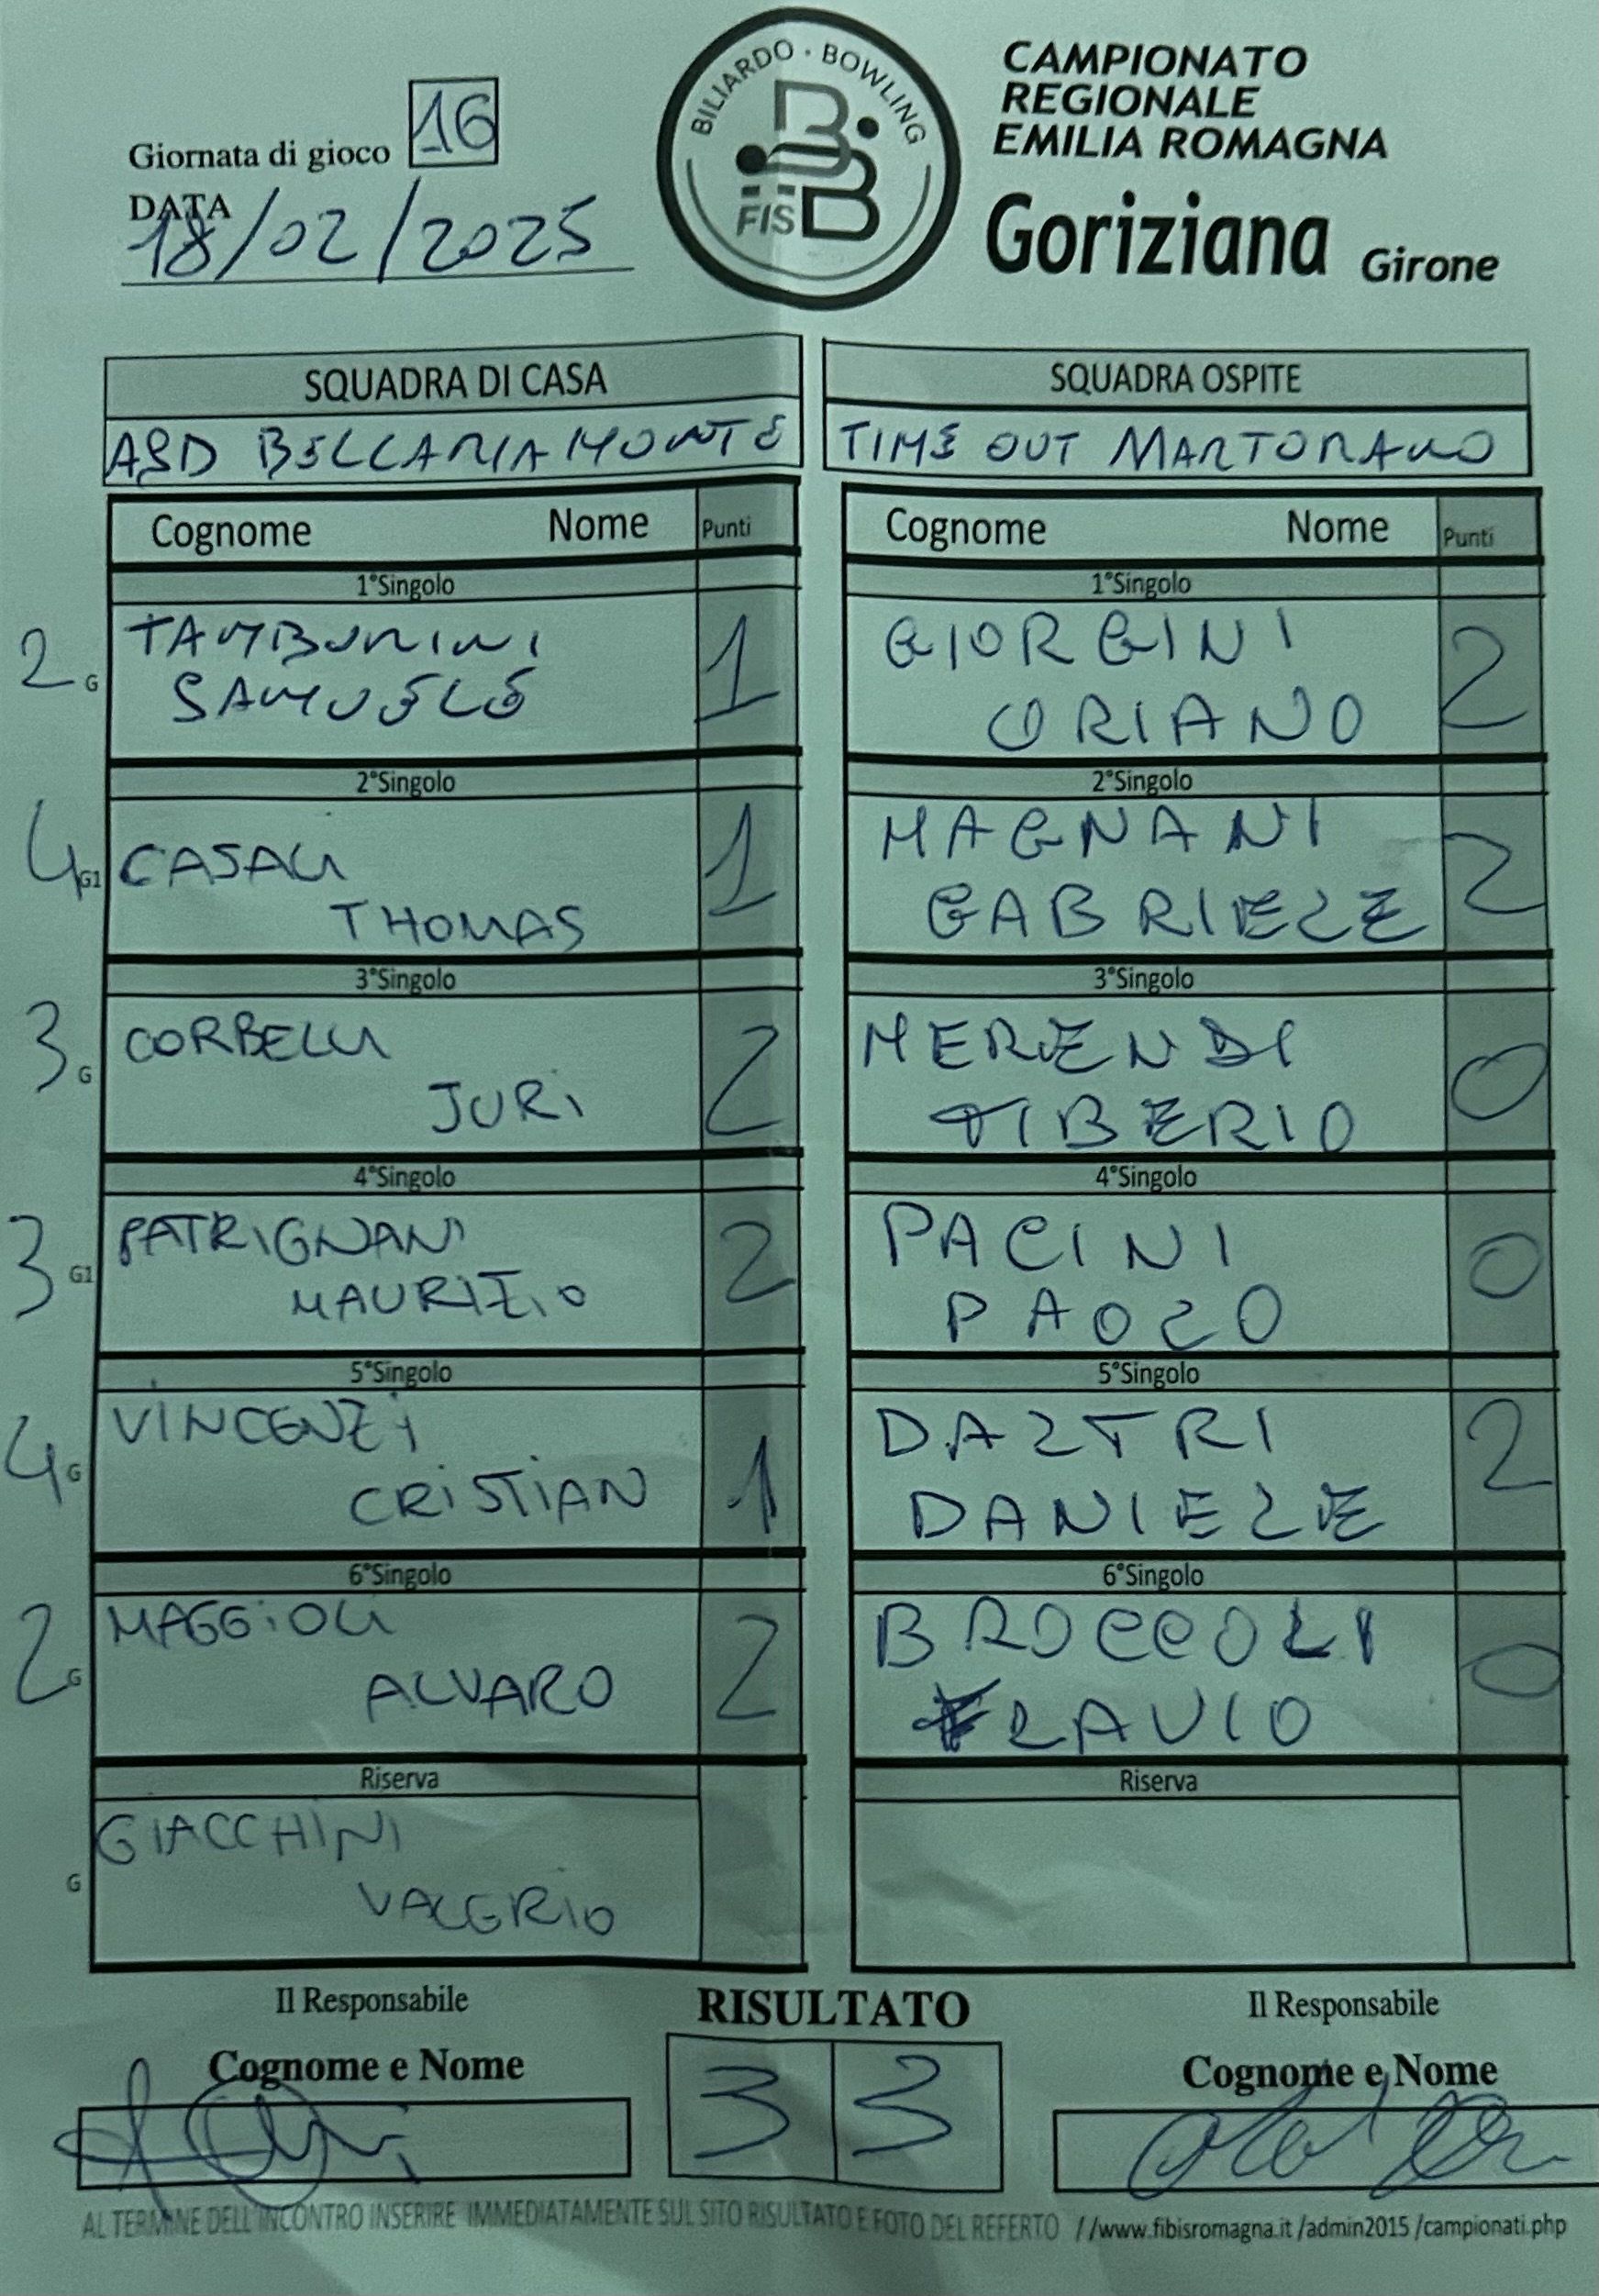 Giornata di gioco 16
DATA
18/02/2025
BILIARDO · BOWLING
FISBB
CAMPIONATO
REGIONALE
EMILIA ROMAGNA
Goriziana Girone
SQUADRA DI CASA
ASD BELLARIAMONTE
SQUADRA OSPITE
TIME OUT MARTORANO
Cognome Nome Punti
1°Singolo
2 G TAMBURINI
SAMUELE 1
2°Singolo
4 G1 CASALI
THOMAS 1
3°Singolo
3 G CORBELLI
JURI 2
4°Singolo
3 G1 PATRIGNANI
MAURIZIO 2
5°Singolo
4 G VINCENZI
CRISTIAN 1
6°Singolo
2 G MAGGIOLI
ALVARO 2
Riserva
GIACCHINI
G VALERIO
Cognome Nome Punti
1°Singolo
GIORGINI
ORIANO 2
2°Singolo
MAGNANI
GABRIELE 2
3°Singolo
MERENDI
TIBERIO 0
4°Singolo
PACINI
PAOLO 0
5°Singolo
DALTRI
DANIELE 2
6°Singolo
BROCCOLI
FLAVIO 0
Riserva
Il Responsabile
Cognome e Nome
RISULTATO
3 3
Il Responsabile
Cognome e Nome
AL TERMINE DELL'INCONTRO INSERIRE IMMEDIATAMENTE SUL SITO RISULTATO E FOTO DEL REFERTO //www.fibisromagna.it /admin2015 /campionati.php